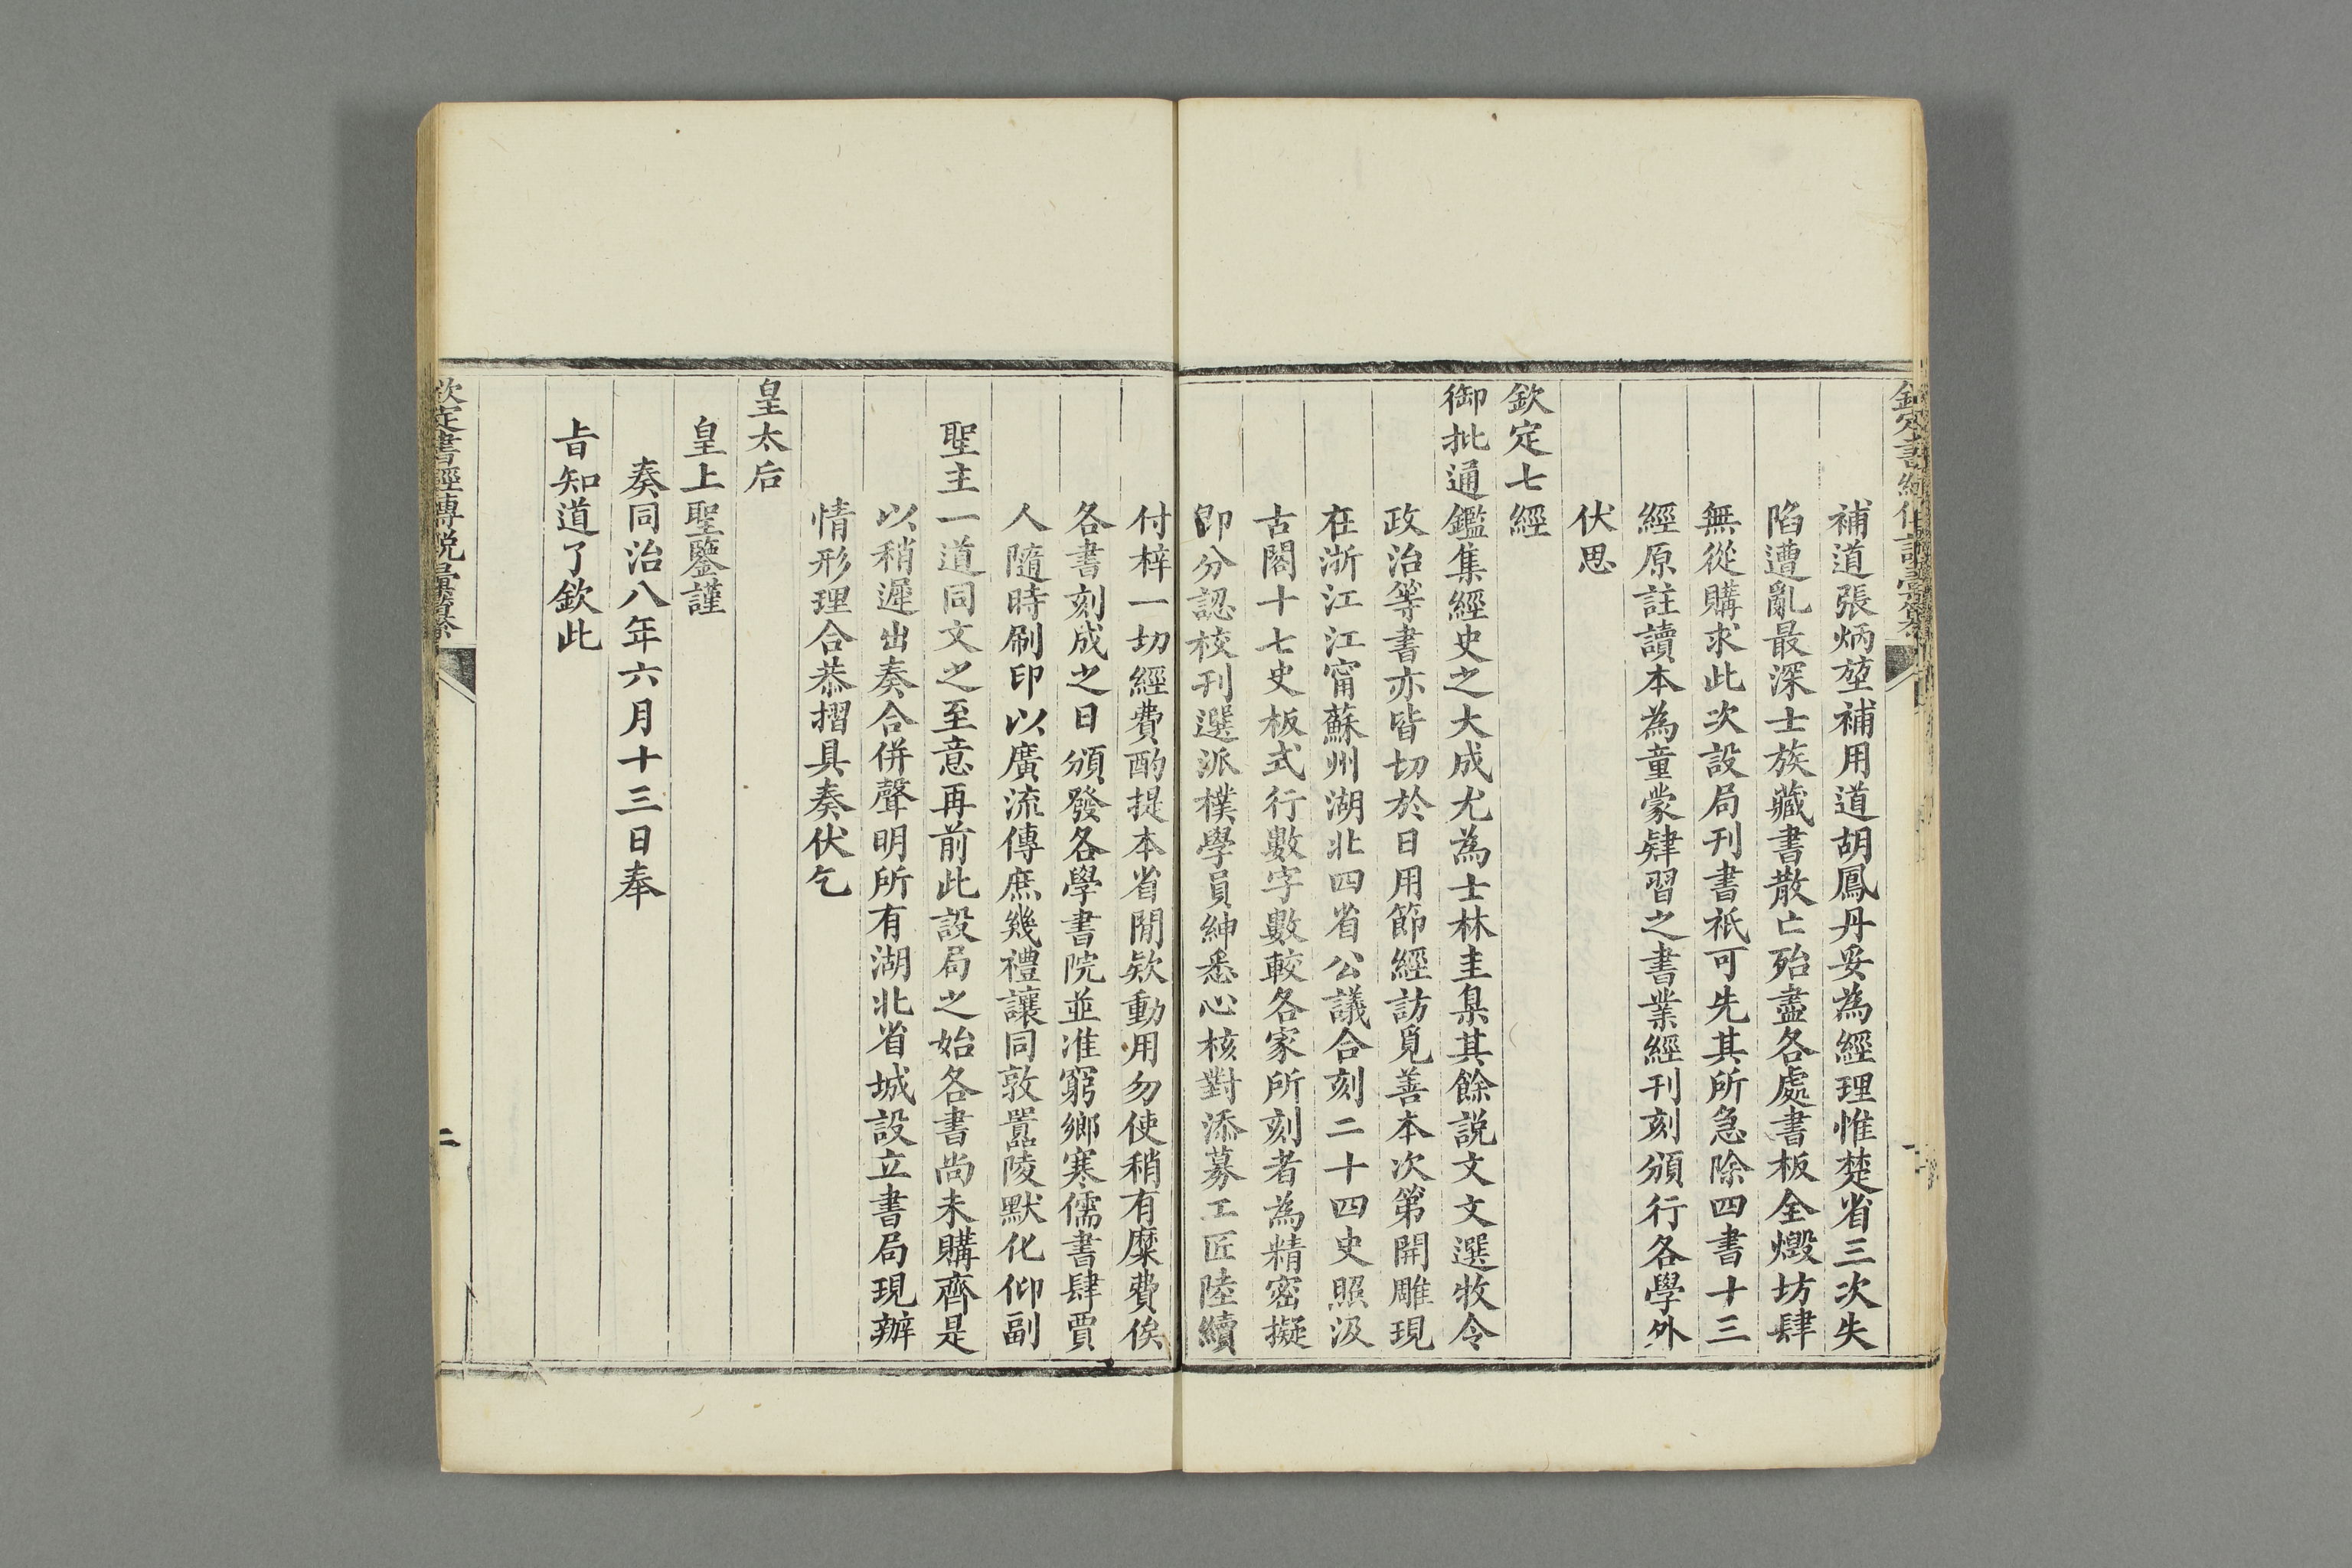 補道張炳堃補用道胡鳳丹妥為經理惟楚省三次失
陷遭亂最深士族藏書散亡殆盡各處書板全燬坊肆
無從購求此次設局刊書祇可先其所急除四書十三
經原註讀本為童蒙肄習之書業經刊刻頒行各學外
伏思
欽定七經
御批通鑑集經史之大成尤為士林圭臬其餘説文文選牧令
政治等書亦皆切於日用節經訪覓善本次第開雕現
在浙江江甯蘇州湖北四省公議合刻二十四史照汲
古閣十七史板式行數字數較各家所刻者為精密擬
卽分認校刊選派樸學員紳悉心核對添募工匠陸續
付梓一切經費酌提本省閒欵動用勿使稍有糜費俟
各書刻成之日頒發各學書院並准窮鄉寒儒書肆賈
人隨時刷印以廣流傳庶幾禮讓同敦囂陵默化仰副
聖主一道同文之至意再前此設局之始各書尚未購齊是
以稍遲出奏合併聲明所有湖北省城設立書局現辦
情形理合恭摺具奏伏乞
皇太后
皇上聖鑒謹
奏同治八年六月十三日奉
旨知道了欽此
欽定書經傳説彙纂
二